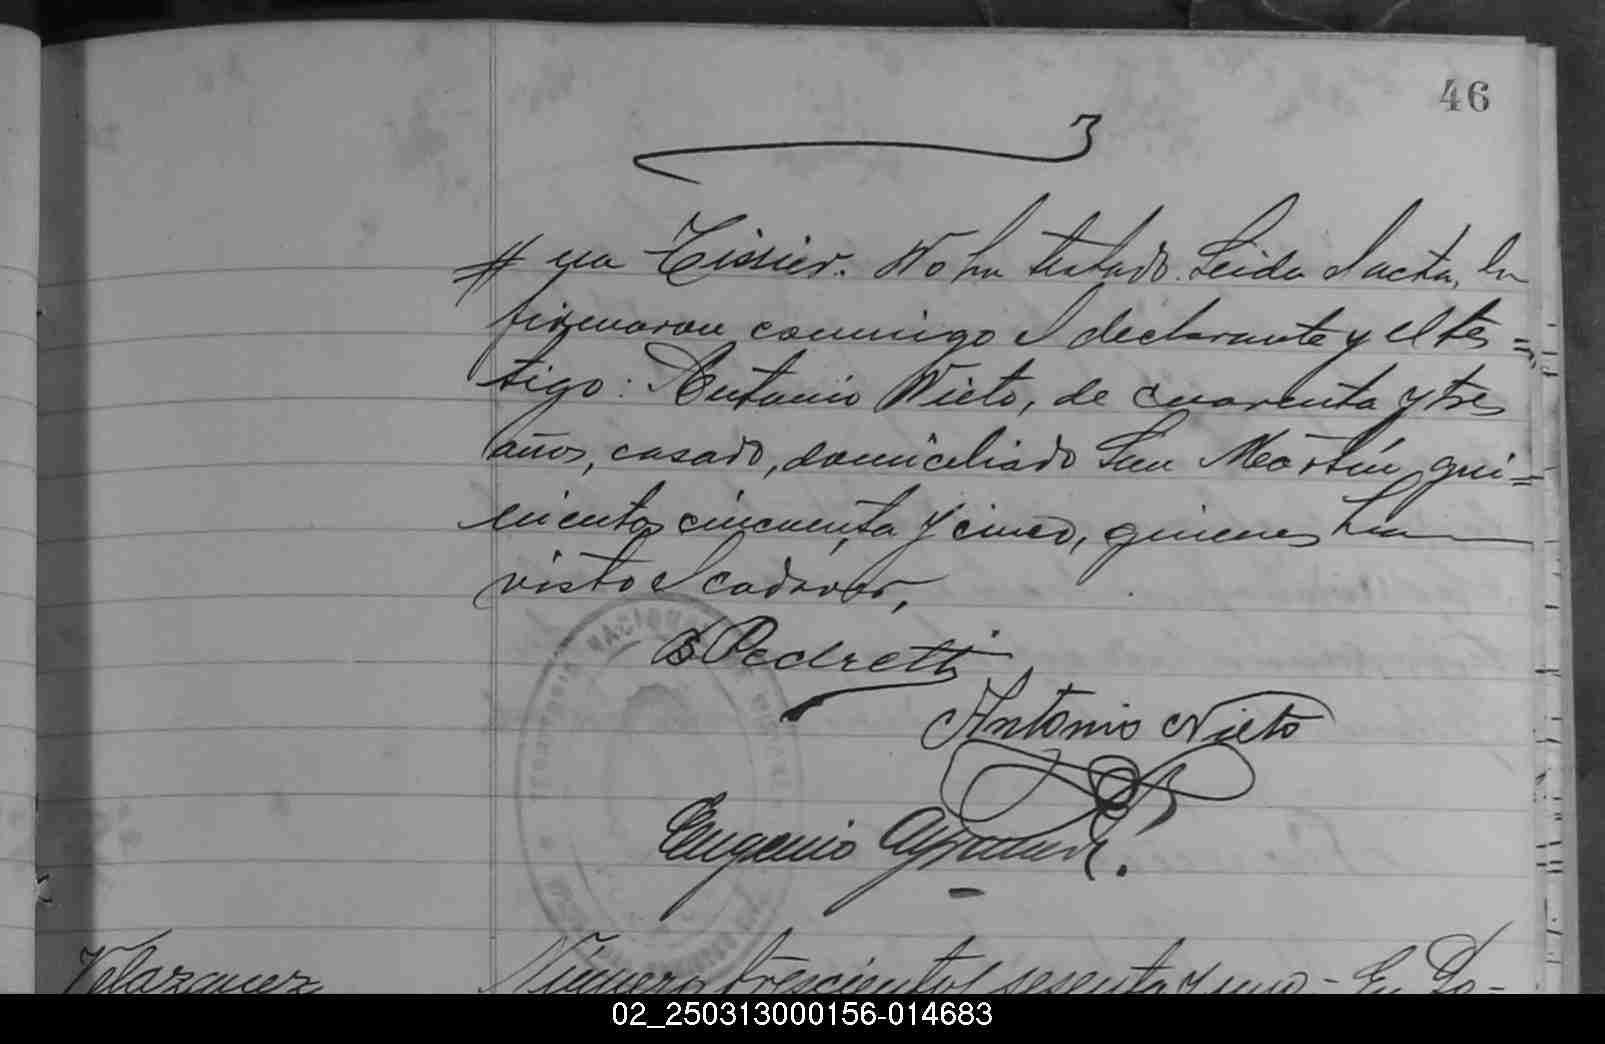 46
na Tissier. No ha testado. Leida el acta, la
firmaron conmigo el declarante y el tes=
tigo: Antonio Nieto, de cuarenta y tres
años, casado, domiciliado San Martín, qui=
nientos cincuenta y cinco, quienes han
visto el cadaver,
B Pedretti
Antonio Nieto
Eugenio
Velazquez
Número trescientos sesenta y uno - En
02_250313000156-014683